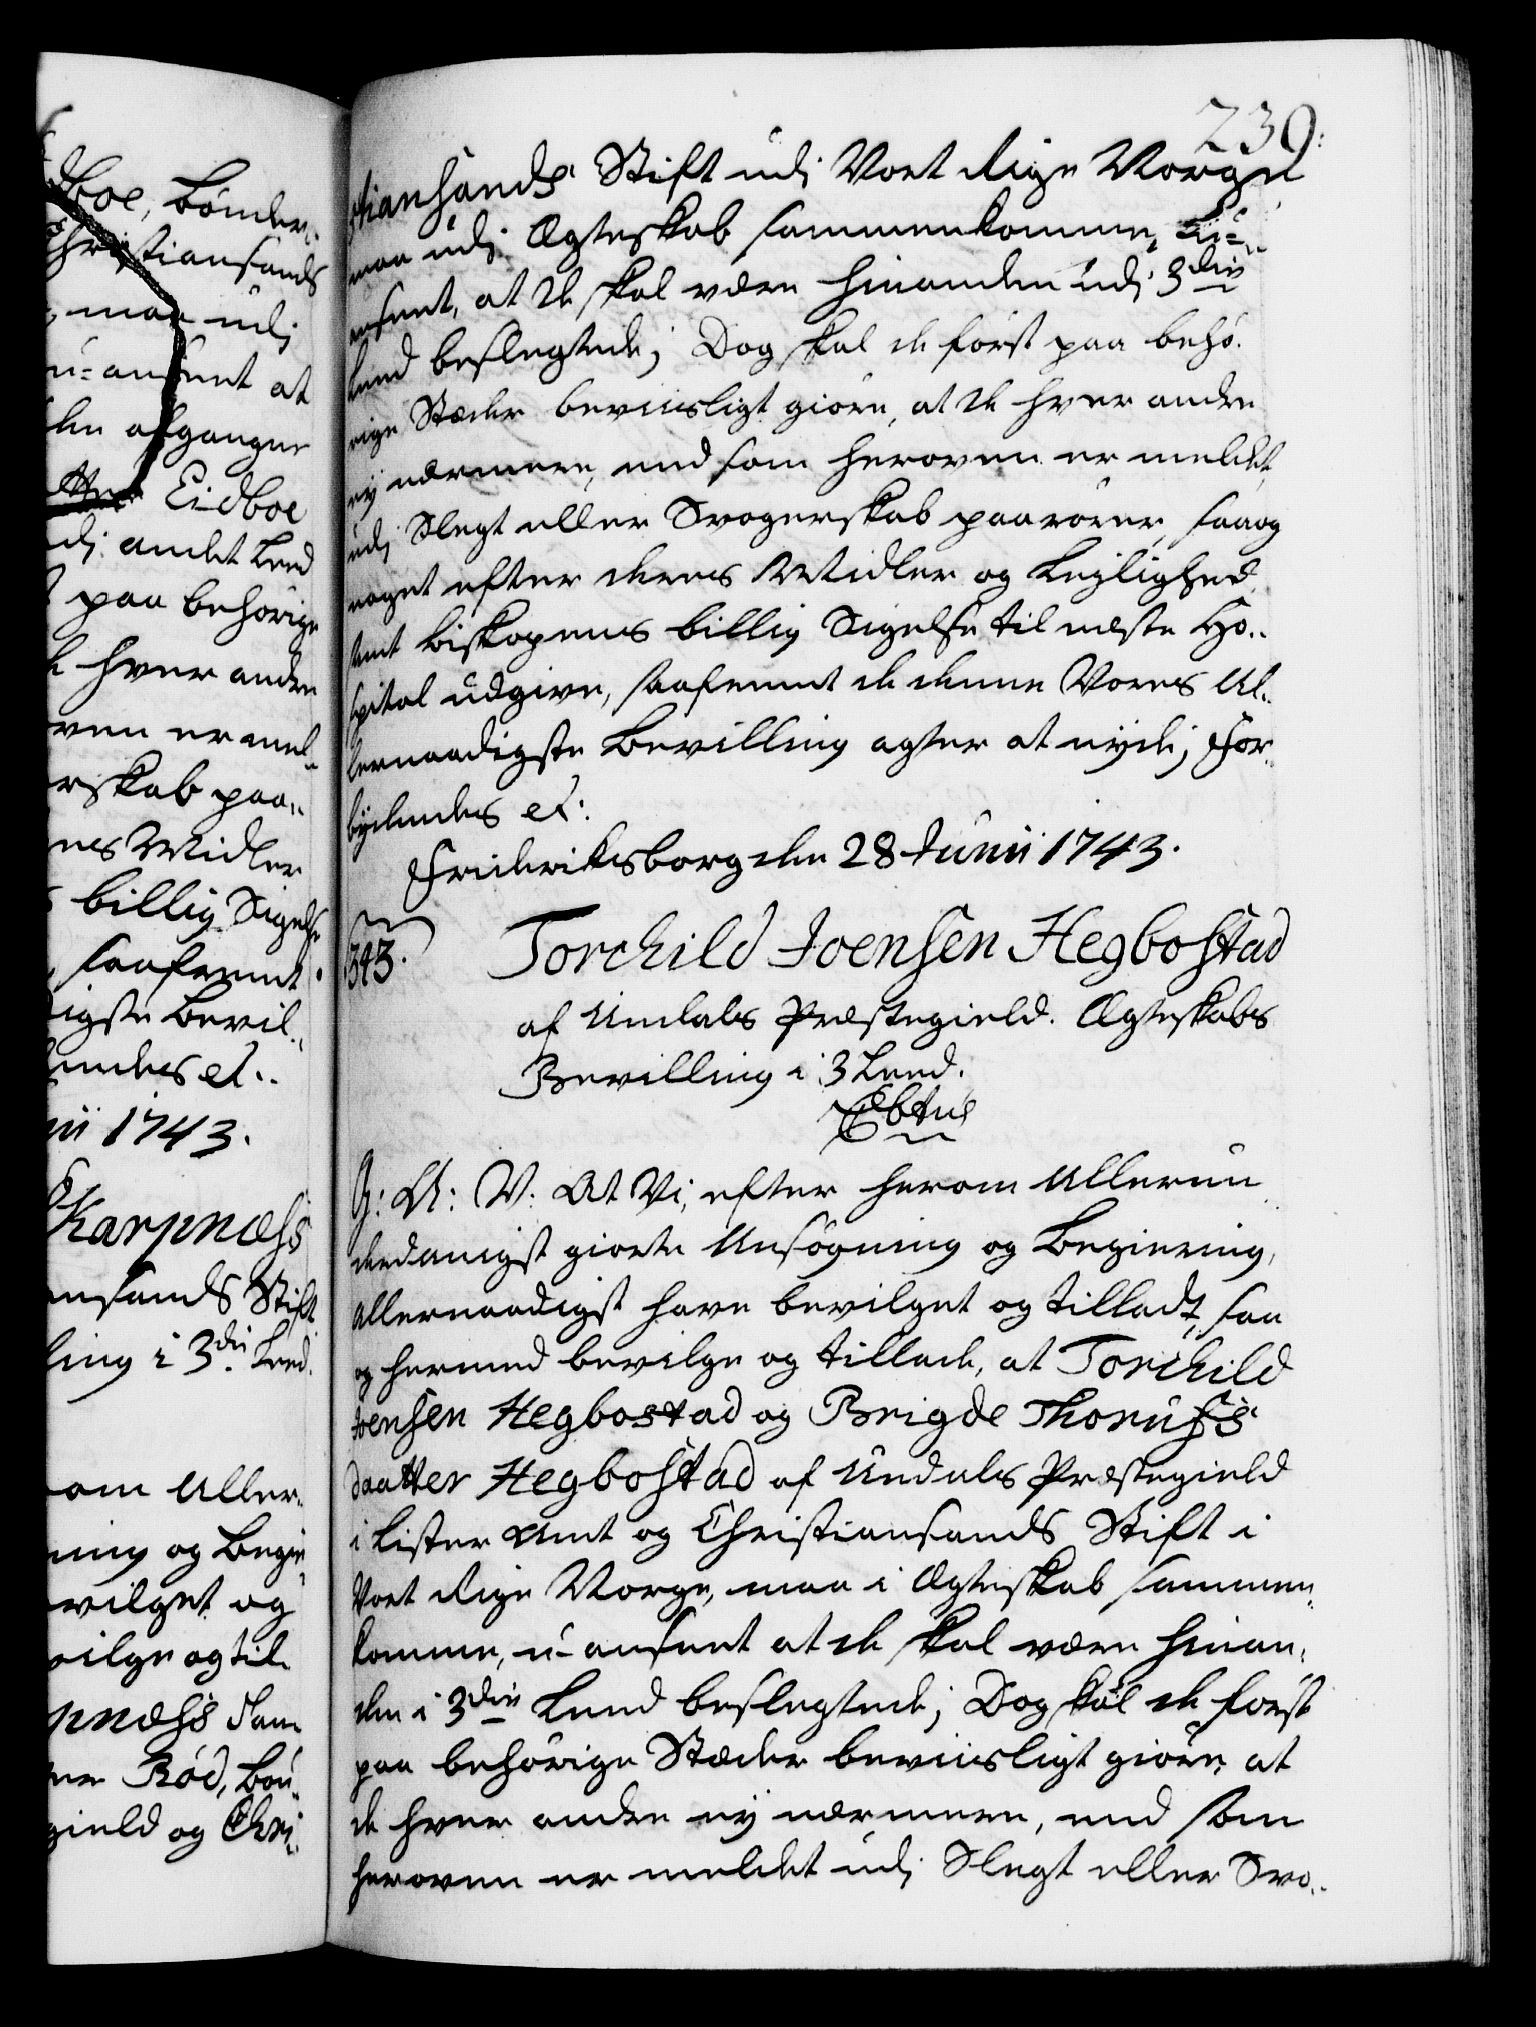 dboe, bönder
Christiansands
maa udj
u-anseet at
den afgangne
Eidboe
dj andet Leed
paa behörige
hver andre
oven er mel-
rskab paa-
res Midler
billig Sigelse
saafremt
digste Bevil-
endes etc.
nii 1743.
Karpnæss
ansands Stift
ling i 3die Leed.
om Aller-
ning og Begie-
vilget og
vilge og til-
pnæss Sam-
ter Röd, Bön-
gield og Chri-
239.
stiansands Stift udj Vort Rige Norge
maa udj Ægteskab sammenkomme, u-
anseet, at de skal være hinanden udj 3die
Leed beslegtede; Dog skal de först paa behö-
rige Stæder beviisligt giöre, at de hver andre
ej nærmere, end som heroven er meldet,
udj Slegt eller Svogerskab paarörer, saa og
noget efter deres Midler og Leylighed
samt Biskopens billig Sigelse til næste Ho-
spital udgive, saafremt de denne Vores Al-
lernaadigste Bevilling agter at nyde; For-
bydendes etc.
Friderichsborg den 28 Junii 1743.
343.
Torchild Joensen Hegbostad
af Undals Præstegield. Ægteskabs
Bevilling i 3 Leed.
G: A: V. At Vi, efter herom Allerun-
derdanigst giorte Ansögning og Begiering,
Allernaadigst have bevilget og tilladt, saa
og hermed bevilge og tillade, at Torchild
Joensen Hegbostad og Brigde Thorufs
daatter Hegbostad af Undals Præstegield
i Lister Amt og Christiansands Stift i
Vort Rige Norge, maa i Ægteskab sammen-
komme, u-anseet at de skal være hinan-
den i 3die Leed beslegtede; Dog skal de först
paa behörige Stæder beviisligt giöre, at
de hver andre ej nærmere, end som
heroven er meldet udj Slegt eller Svo-